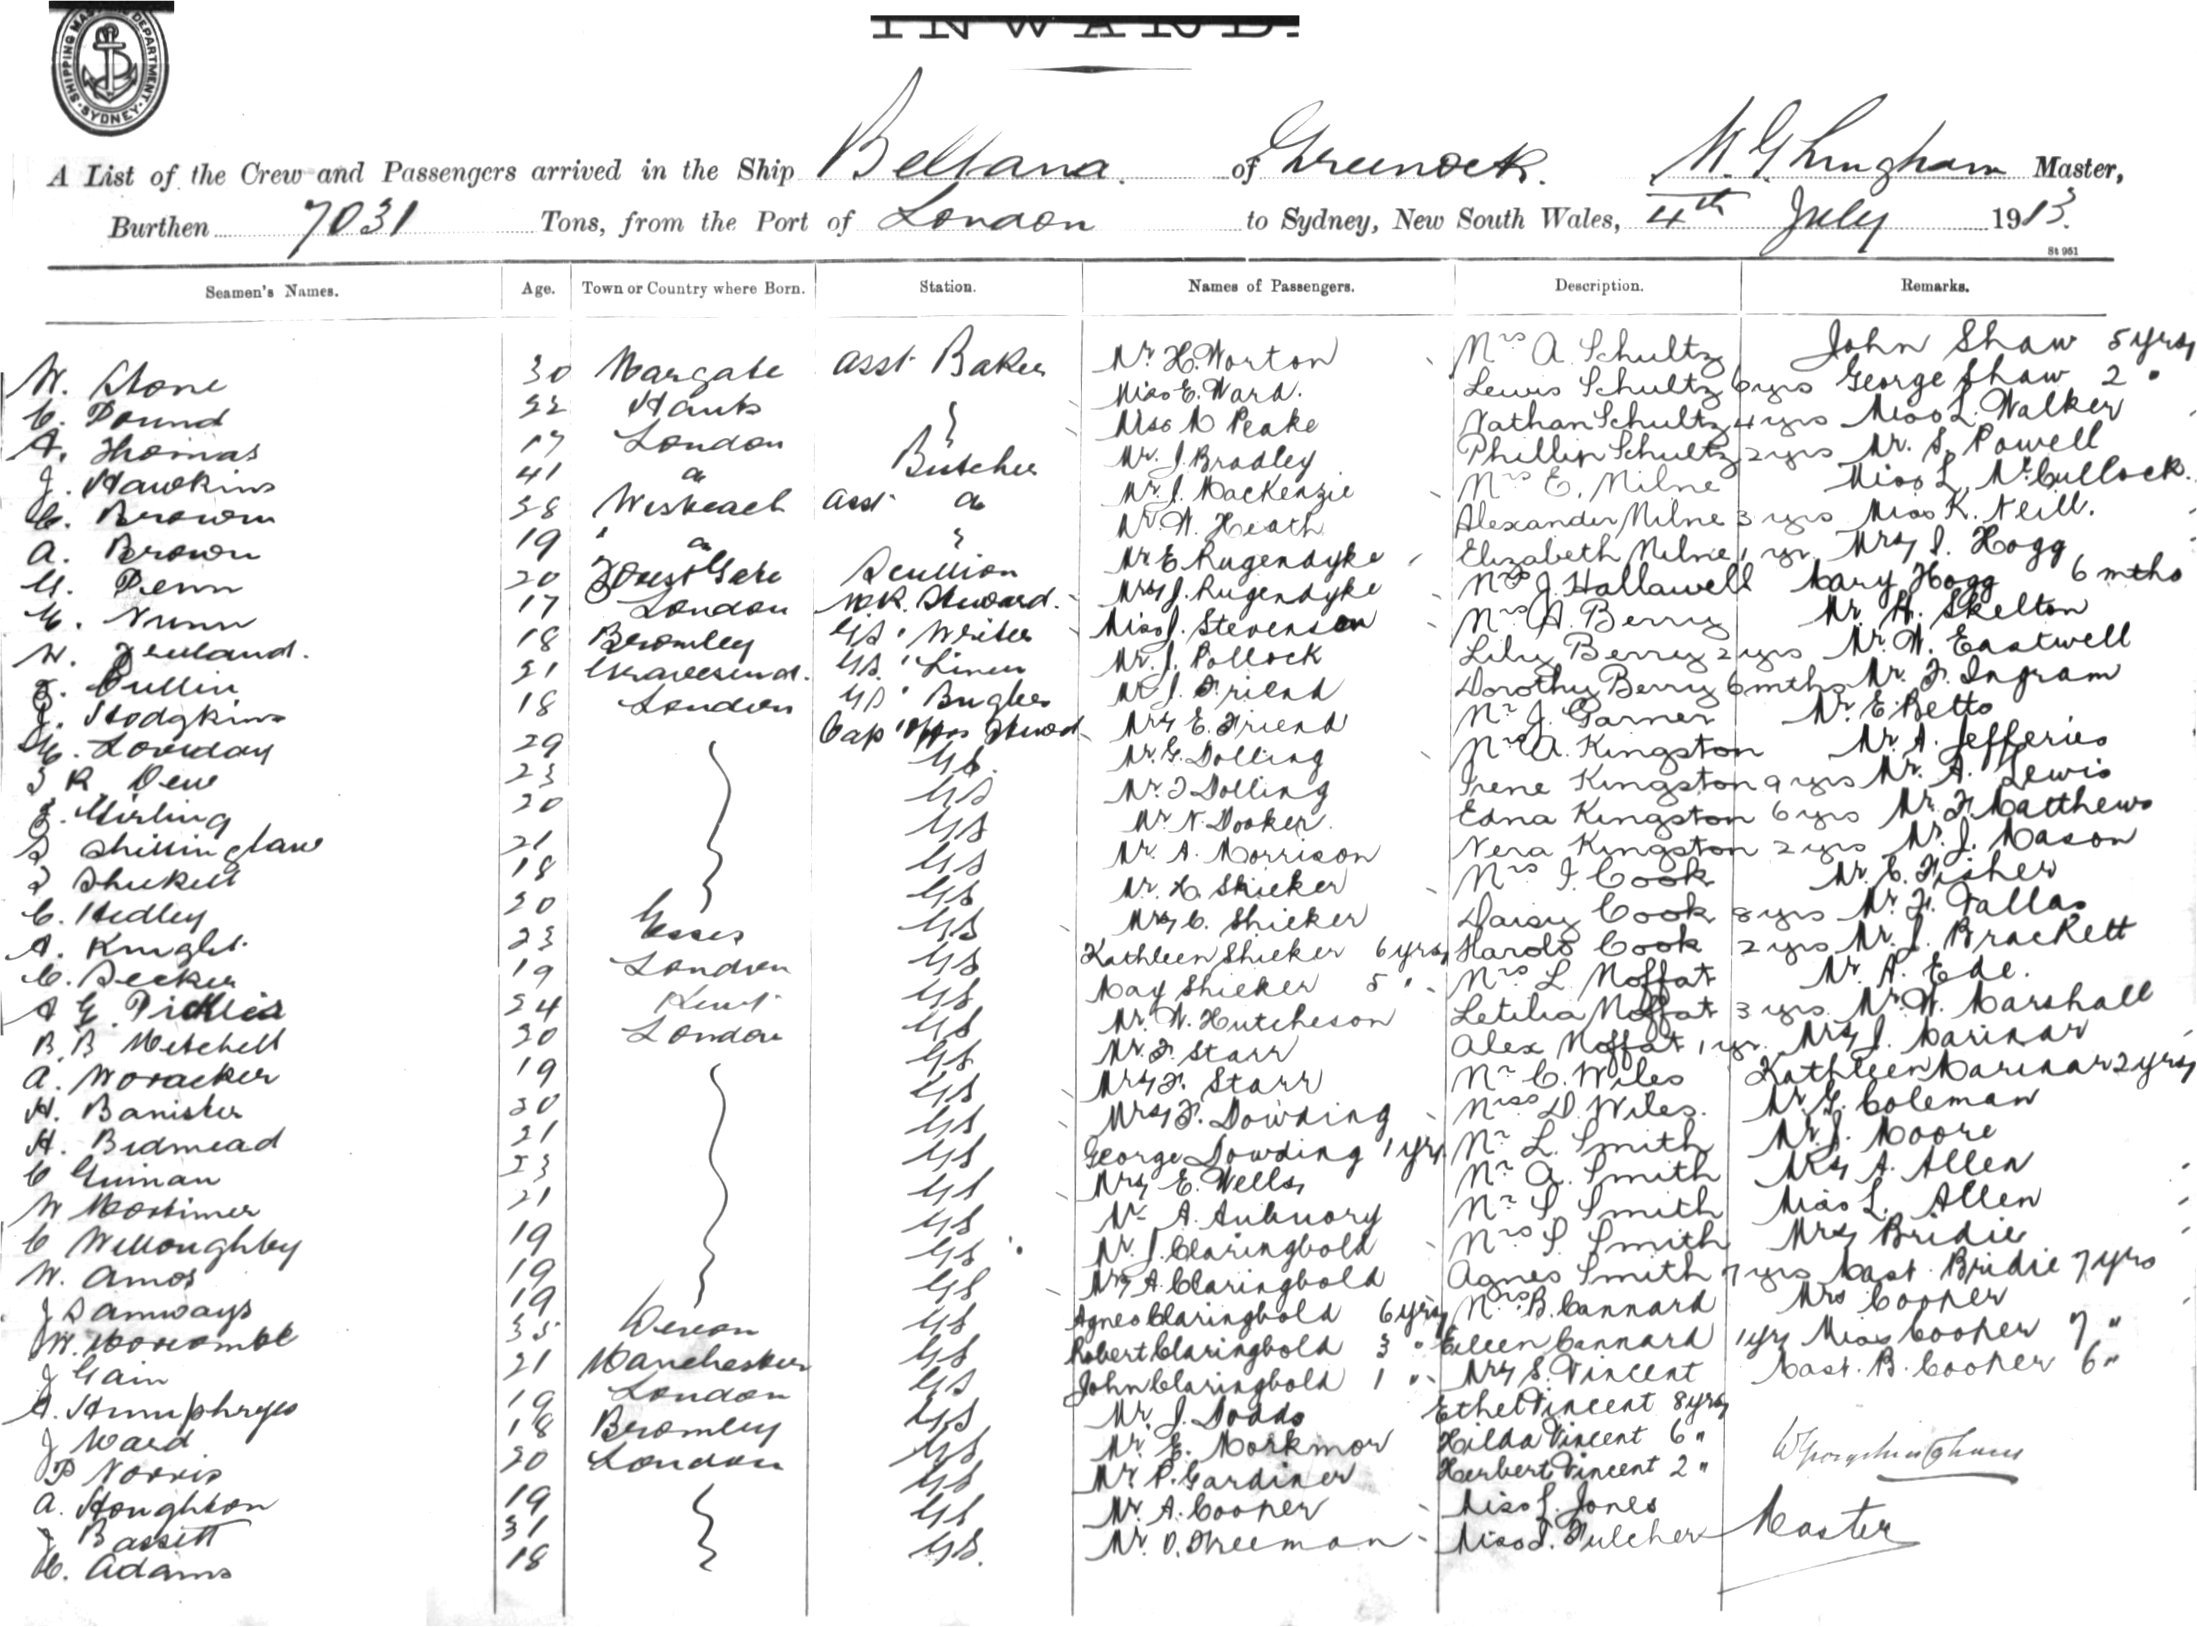 SHIPPING MASTER'S DEPARTMENT SYDNEY
INWARD.
A List of the Crew and Passengers arrived in the Ship Beltana. of Greenock. Master,
Burthen 7031 Tons, from the Port of London to Sydney, New South Wales, 4th July 1913.
St 961
Seamen's Names. Age. Town or Country where Born. Station. Names of Passengers. Description. Remarks.
W. Stone 30 Margate asst Baker Mr H. Worton Mrs A. Schultz John Shaw 5 yrs
C. Pound 22 Hants Miss E. Ward. Lewis Schultz 6 yrs George Shaw 2 "
A. Thomas 17 London Miss M Peake Nathan Schultz 4 yrs Miss L. Walker
J. Hawkins 41 do Butcher Mr. J. Bradley Phillip Schultz 2 yrs Mr. S. Powell
C. Brown 38 Wisbeach asst do Mr. J. MacKenzie Mrs E. Milne Miss L. McCullock.
A. Brown 19 " do Mr W. Heath Alexander Milne 3 yrs Miss K. Neill.
Penn 20 Forest Gate Scullion Mr E Rugendyke Elizabeth Milne 1 yr. Mrs J. Hogg
Nunn 17 London Steward. Mrs J. Rugendyke Mrs J. Hallawell Mary Hogg 6 mths
W. 18 Bromley GS. Writer Miss J. Stevenson Mrs A. Berry Mr H. Skelton
Pullin 21 Gravesend. GS. Linen Mr. J. Pollock Lily Berry 2 yrs Mr. W. Eastwell
J. Hodgkins 18 London GS. Bugler Mr J. Friend Dorothy Berry 6 mths Mr. F. Ingram
Loveday 29 Mrs E. Friend Mr J. Garner Mr. E. Betts
R Dew 23 GS. Mr. G. Dolling Mrs A. Kingston Mr. A. Jefferies
Stirling 20 GS Mr. J Dolling Irene Kingston 9 yrs Mr. A. Lewis
Shillinglaw 21 GS Mr N. Dooker. Edna Kingston 6 yrs Mr. F. Matthews
18 GS Mr. A. Morrison Vera Kingston 2 yrs Mr. J. Mason
C. Hedley 20 GS Mr. H. Shieker Mrs I. Cook Mr. E. Fisher
A. Knight. 23 Essex GS Mrs C. Shieker Daisy Cook 8 yrs Mr. F. Fallas
C. Decker 19 London GS Kathleen Shieker 6 yrs Harold Cook 2 yrs Mr. J. Brackett
A G. Pickles 24 Kent GS May Shieker 5 " Mrs L. Moffat Mr. A. Ede.
B. B Mitchell 20 London GS Mr. W. Hutcheson Letilia Moffat 3 yrs. Mr. W. Marshall
A. Woracker 19 GS Mr. F. Starr Alex Moffat 1 yr. Mrs J. Marinar
H. Banister 20 GS Mrs F. Starr Mr C. Wiles Kathleen Marinar 2 yrs
H. Bidmead 21 GS Mrs F. Dowding Miss D. Wiles. Mr. G. Coleman
C Guinan 23 GS George Dowding 1 yr. Mr L. Smith Mr. J. Moore
W Mortimer 21 GS Mrs E. Wells Mr A. Smith Mrs A. Allen
C Willoughby 19 GS Mr A. Mr S Smith Miss L. Allen
W. Amos 19 GS Mr. J. Claringbold Mrs S. Smith Mrs Bridie
J Samways 19 GS Mrs A. Claringbold Agnes Smith 7 yrs Mast. Bridie 7 yrs
W. 35 Devon GS Agnes Claringbold 6 yrs Mrs B. Cannard Mrs Cooper
J Gain 21 Manchester GS Robert Claringbold 3 " Eileen Cannard 1 yr Miss Cooper 7 "
A. Humphryes 19 London GS John Claringbold 1 " Mrs S. Vincent Mast. B. Cooper 6 "
J Ward 18 Bromley GS Mr. J. Dodds Ethel Vincent 8 yrs
P Norris 20 London GS Mr. E. Morkmor Hilda Vincent 6 "
A. Houghton 19 GS Mr. P. Gardiner Herbert Vincent 2 "
J Bassett 31 GS Mr. A. Cooper Miss L. Jones
H. Adams 18 GS. Mr. O. Freeman Miss J. Fulcher Master